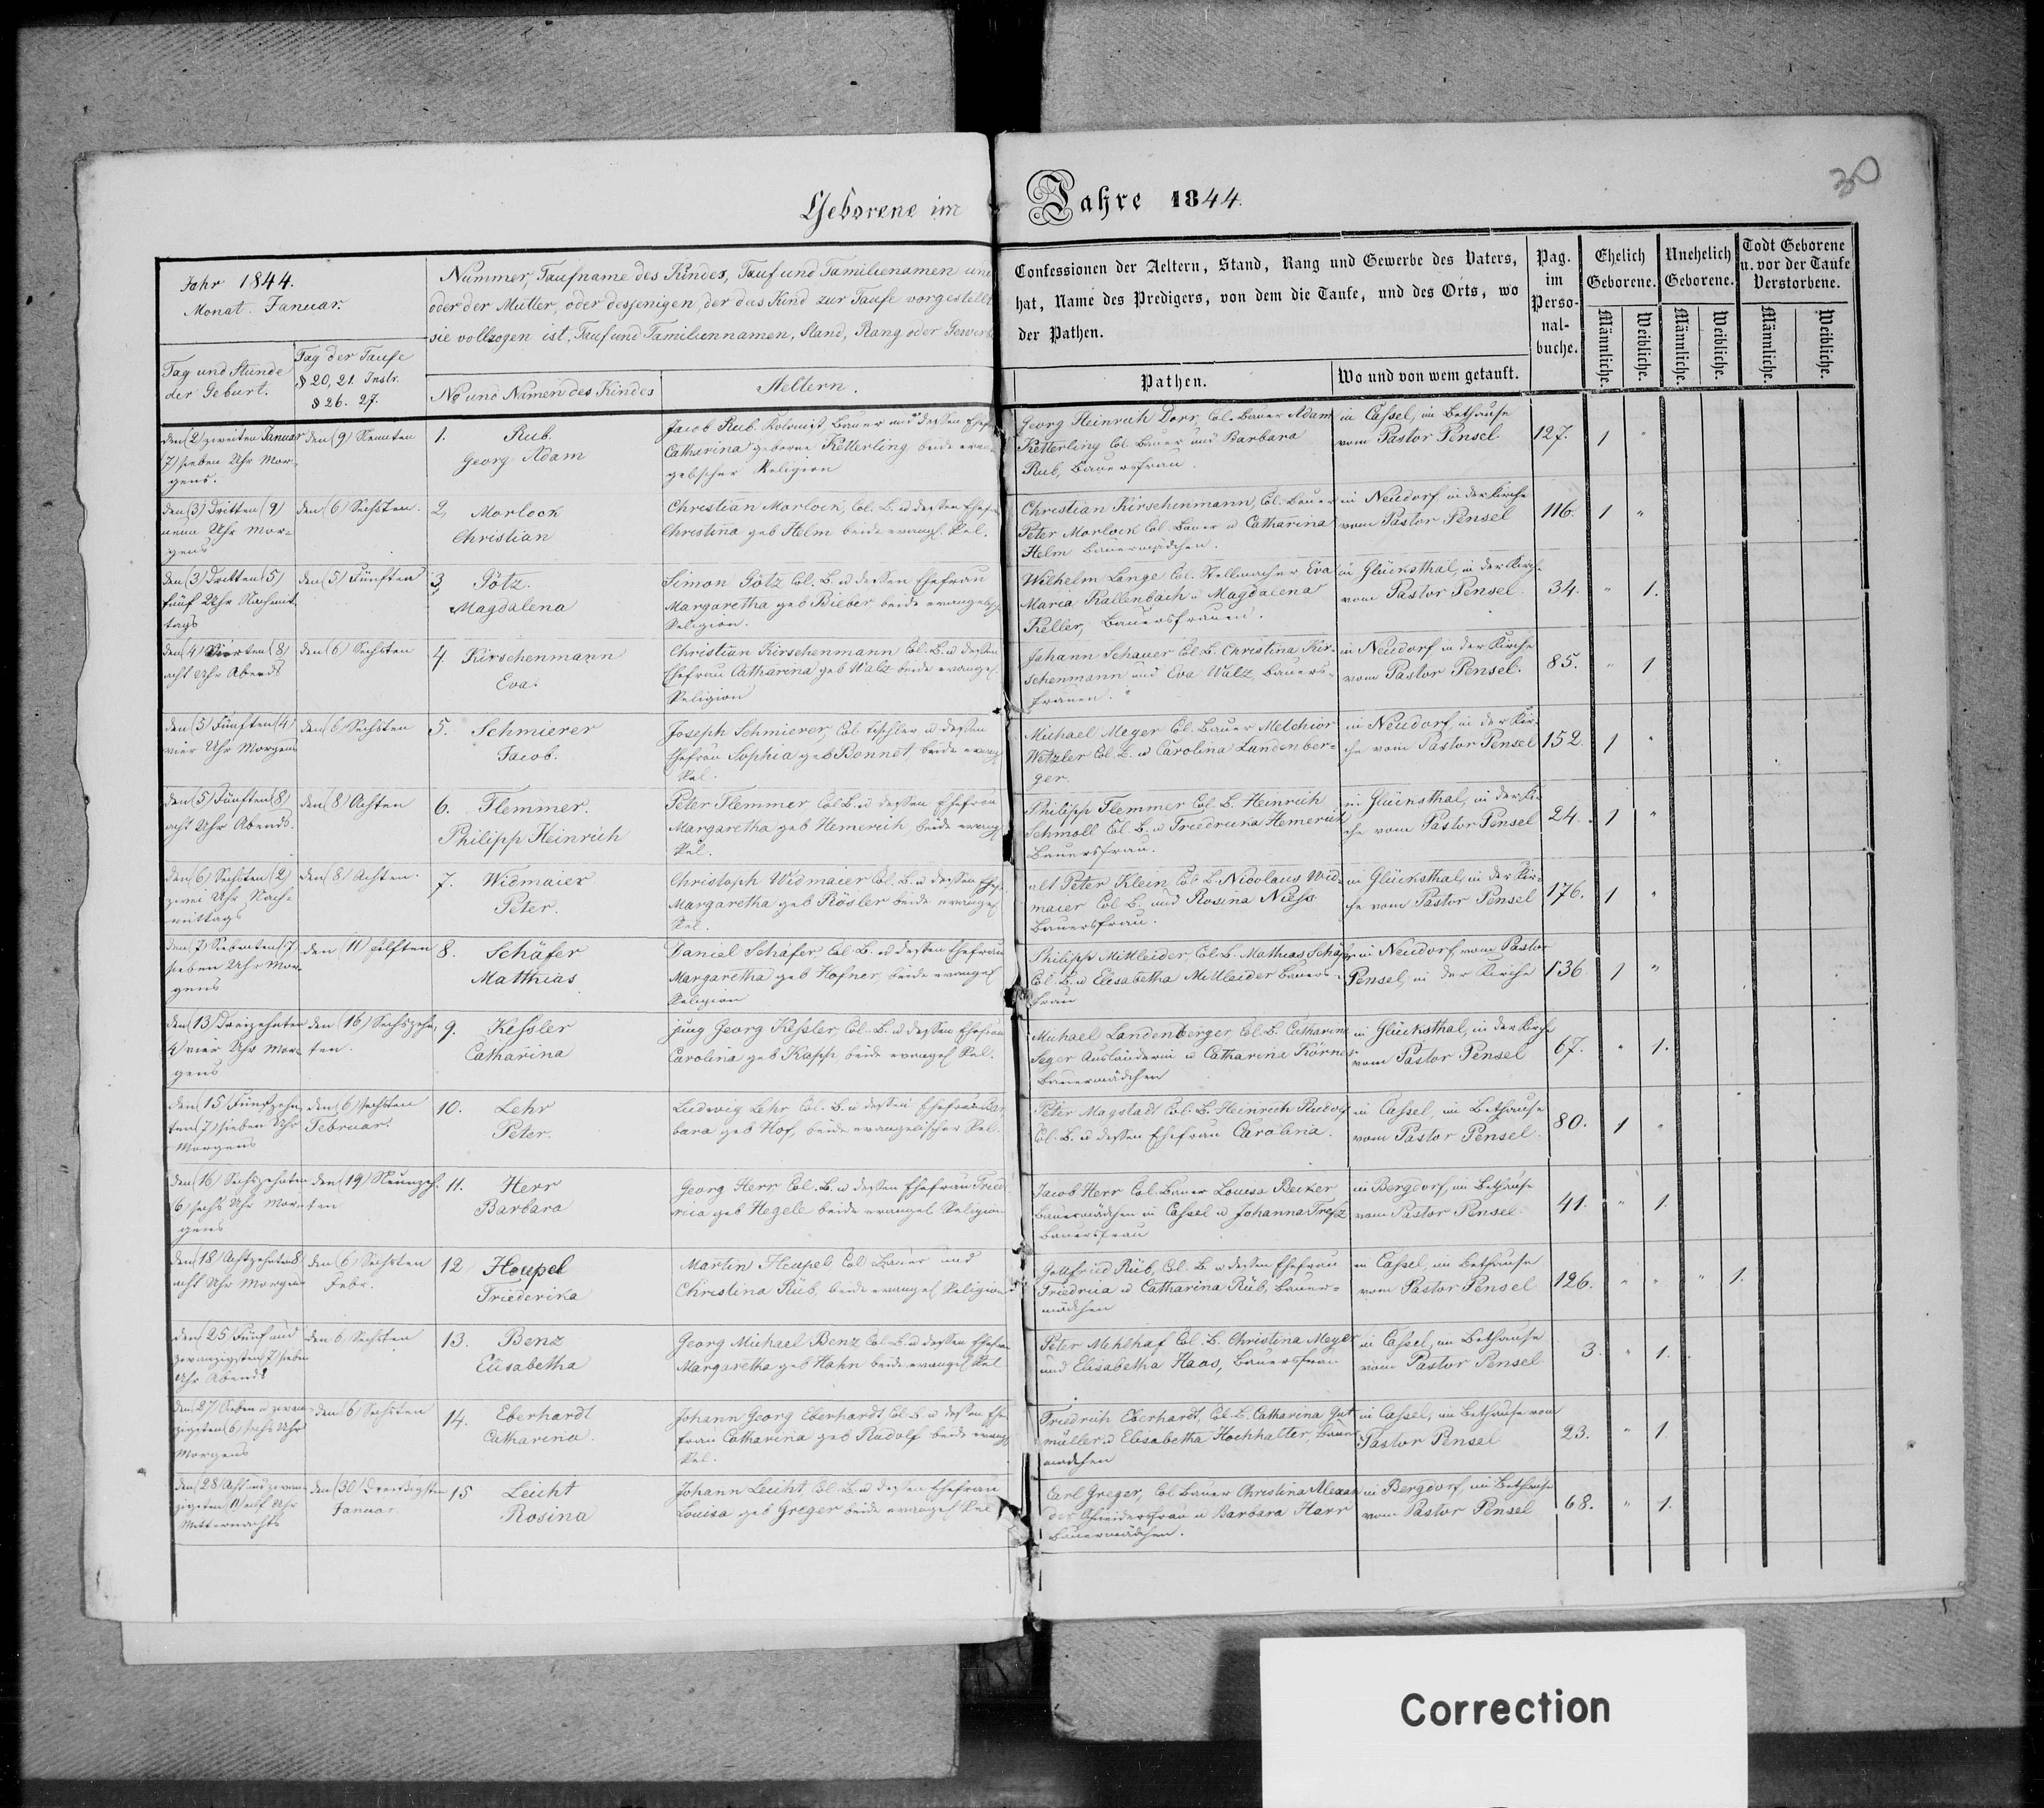 30
Geborene im Jahre 1844.
Jahr 1844.
Monat Januar.
Nummer, Taufname des Kindes, Tauf und Familienamen
oder der Mutter, oder desjenigen, der das Kind zur Taufe vorgestellt
sie vollzogen ist, Tauf und Familiennamen, Stand, Rang oder
Tag und Stunde
der Geburt.
Tag der Taufe
§ 20, 21. Instr.
§ 26. 27.
No und Namen des Kindes
Aeltern.
Confessionen der Aeltern, Stand, Rang und Gewerbe des Vaters,
hat, Name des Predigers, von dem die Taufe, und des Orts, wo
der Pathen.
Pathen.
Wo und von wem getauft.
Pag.
im
Perso-
nal-
buche.
Ehelich
Geborene.
Unehelich
Geborene.
Todt Geborene
u. vor der Taufe
Verstorbene.
Männliche.
Weibliche.
Männliche.
Weibliche.
Männliche.
Weibliche.
den (2) zweiten Januar
(7) sieben Uhr Mor-
gens.
den (9) Neunten
1. Rub.
Georg Adam
Jacob Rub. Kolonist Bauer und dessen
Catharina geborne Ketterling beide evan-
gelischer Religion
Georg Heinrich Dorr, Col. Bauer Adam
Ketterling Col. Bauer und Barbara
Rub, Bauersfrau.
in Cassel, im Bethause
vom Pastor Pensel.
127. 1 "
den (3) Dritten (9)
neun Uhr Mor-
gens
den (6) Sechsten.
2, Morlock
Christian
Christian Morlock, Col. B. u dessen
Christina geb Helm beide evangl. Rel.
Christian Kirschenmann, Col. Bauer
Peter Morlock Col. Bauer u Catharina
Helm Bauermädchen.
in Neudorf in der Kirche
vom Pastor Pensel
116. 1 "
den (3) Dritten (5)
fünf Uhr Nachmit
tags
den (5) Fünften
3, Götz.
Magdalena
Simon Götz Col. B. u dessen Ehefrau
Margaretha geb Bieber beide evangelisch
Religion.
Wilhelm Lange Col. Stellmacher Eva
Maria Kallenbach u Magdalena
Keller, Bauersfrauen.
in Glücksthal, in der Kirche
vom Pastor Pensel.
34. " 1.
den (4) Vierten (8)
acht Uhr Abends
den (6) Sechsten
4. Kirschenmann
Eva.
Christian Kirschenmann Col. B. u dessen
Ehefrau Catharina geb Walz beide evangel.
Religion
Johann Schauer Col B. Christina Kir-
schenmann und Eva Walz, Bauers-
frauen.
in Neudorf in der Kirche
vom Pastor Pensel.
85. " 1
den (5) Fünften (4)
vier Uhr Morgens
den (6) Sechsten
5. Schmierer
Jacob.
Joseph Schmierer, Col Tischler u dessen
Ehefrau Sophia geb Bonnet, beide evang
Rel.
Michael Meger Col. Bauer Melchior
Wetzler Col B. u Carolina Landenber-
ger.
in Neudorf, in der Kir-
che vom Pastor Pensel
152. 1 "
den (5) Fünften (8)
acht Uhr Abends.
den (8) Achten
6. Flemmer.
Philipp Heinrich
Peter Flemmer Col B. u dessen Ehefrau
Margaretha geb Hemerich beide evang
Rel.
Philipp Flemmer Col. B. Heinrich
Schmoll Col. B. u Friedricka Hemerich
Bauersfrau.
in Glücksthal, in der Kir
che vom Pastor Pensel
24. 1 "
den (6) Sechsten (2)
zwei Uhr Nach-
mittags
den (8) Achten.
7. Widmaier
Peter.
Christoph Widmaier Col. B. u dessen
Margaretha geb Rösler beide evangel
Rel.
alt Peter Klein, Col. B. Nicolaus Wid-
maier Col B. und Rosina
Bauersfrau.
in Glücksthal, in der Kir-
che vom Pastor Pensel
176. 1 "
den (7) Siebenten (7)
sieben Uhr Mor-
gens
den (11) Elften
8. Schäfer
Matthias
Daniel Schäfer, Col. B. u dessen Ehefrau
Margaretha geb Hofner, beide evangel
Religion
Philipp Mittleider, Col. B. Mathias Schäfer
Col. B. u Elisabetha Mittleider Bauers-
frau
in Neudorf vom Pastor
Pensel, in der Kirche
136. 1 "
den (13) Dreizehnten
(4) vier Uhr Mor-
gens
den (16) Sechszehn-
ten.
9. Kessler
Catharina
jung Georg Kessler, Col. B. u dessen Ehefrau
Carolina geb Kapp, beide evangel Rel.
Michael Landenberger Col. B. Catharina
Seger Ausländerin u Catharina Körner
Bauermädchen
in Glücksthal, in der Kirche
vom Pastor Pensel
67. " 1.
den (15) Fünfzehn-
ten (7) sieben Uhr
Morgens
den (6) Sechsten
Februar.
10. Lehr
Peter.
Ludwig Lehr Col. B. u dessen Ehefrau Bar
bara geb Hof, beide evangelischer Rel.
Peter Magstadt Col. B. Heinrich Rudolf
Col. B. u dessen Ehefrau Carolina.
in Cassel, im Bethause
vom Pastor Pensel.
80. 1 "
den (16) Sechszehnten
(6) sechs Uhr Mor-
gens
den (19) Neunzeh-
ten
11. Herr
Barbara
Georg Herr Col. B. u dessen Ehefrau Fried
rica geb Hegele beide evangel Religion
Jacob Herr Col. Bauer Louisa Becker
Bauermädchen in Cassel u Johanna Trefz
Bauersfrau
in Bergdorf, im Bethause
vom Pastor Pensel
41. " 1.
den (18) Achtzehnten 8
acht Uhr Morgens
den (6) Sechsten
Febr.
12 Heupel
Friederika
Martin Heupel Col Bauer und
Christina Rüb, beide evangel Religion
Gottfried Rüb, Col. B. u dessen Ehefrau
Friedrica u Catharina Rüb, Bauer-
mädchen
in Cassel, im Bethause
vom Pastor Pensel
126. " " " 1.
den (25) Fünf und
zwanzigsten (7) sieben
Uhr Abends
den 6 Sechsten
13. Benz
Elisabetha
Georg Michael Benz Col. B. u dessen Ehefrau
Margaretha geb Hahn beide evangel Rel
Peter Mehlhaf Col. B. Christina Meyer
und Elisabetha Haas, Bauersfrau
in Cassel, im Bethause
vom Pastor Pensel
3. " 1.
den 27 Sieben u zwan-
zigsten (6) sechs Uhr
Morgens
den (6) Sechsten
14. Eberhardt
Catharina.
Johann Georg Eberhardt, Col B. u dessen Ehe
frau Catharina geb Rudolf beide evang
Rel.
Friedrich Eberhardt, Col. B. Catharina Gut
müller u Elisabetha Hochhalter, Bauer
mädchen
in Cassel, im Bethause vom
Pastor Pensel
23. " 1.
den (28 Acht und zwan-
zigsten (11) elf Uhr
Mitternachts
den (30) Dreissigsten
Januar
15 Leicht
Rosina
Johann Leicht, Col. B. u dessen Ehefrau
Louisa geb Greger beide evangel Rel
Carl Greger, Col Bauer Christina Alexan
der Schneidersfrau u Barbara Harr
Bauermädchen.
in Bergdorf, im Bethause
vom Pastor Pensel
68. " 1.
Correction